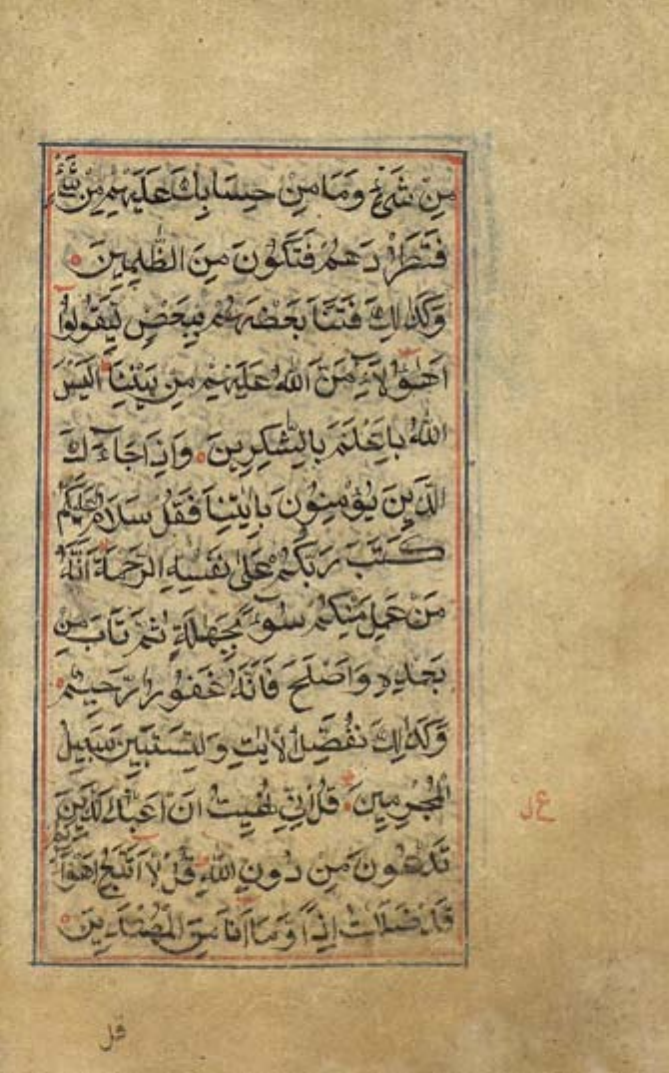 مِنْ شَيْءٍ وَمَا مِنْ حِسَابِكَ عَلَيْهِمْ مِنْ شَيْءٍ
فَتَطْرُدَهُمْ فَتَكُونَ مِنَ الظّٰلِمِينَ
وَكَذٰلِكَ فَتَنَّا بَعْضَهُمْ بِبَعْضٍ لِيَقُولُوا
اَهٰؤُلَاءِ مَنَّ اللّٰهُ عَلَيْهِمْ مِنْ بَيْنِنَا اَلَيْسَ
اللّٰهُ بِاَعْلَمَ بِالشّٰكِرِينَ وَاِذَا جَاءَكَ
الَّذِينَ يُؤْمِنُونَ بِاٰيٰتِنَا فَقُلْ سَلَامٌ عَلَيْكُمْ
كَتَبَ رَبُّكُمْ عَلٰى نَفْسِهِ الرَّحْمَةَ اَنَّهُ
مَنْ عَمِلَ مِنْكُمْ سُوءً بِجَهٰلَةٍ ثُمَّ تَابَ مِنْ
بَعْدِهِ وَاَصْلَحَ فَاَنَّهُ غَفُورٌ رَحِيمٌ
وَكَذٰلِكَ نُفَصِّلُ الْاٰيٰتِ وَلِتَسْتَبِينَ سَبِيلُ
الْمُجْرِمِينَ قُلْ اِنِّي نُهِيتُ اَنْ اَعْبُدَ الَّذِينَ
تَدْعُونَ مِنْ دُونِ اللّٰهِ قُلْ لَا اَتَّبِعُ اَهْوَاءَكُمْ
قَدْ ضَلَلْتُ اِذًا وَمَا اَنَا مِنَ الْمُهْتَدِينَ
قل